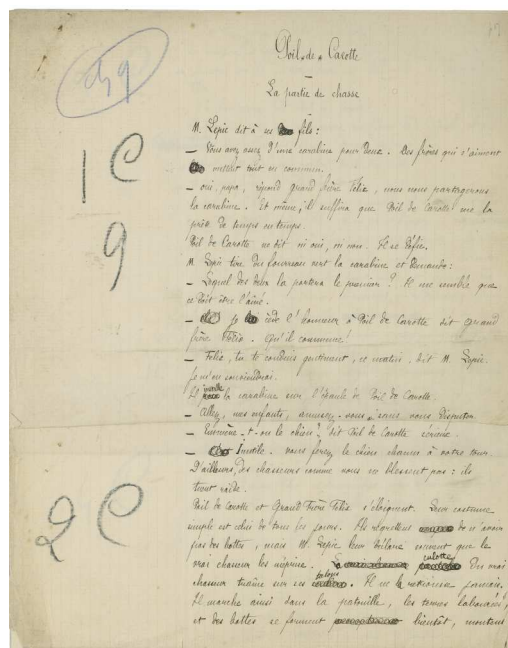 Poil de Carotte
La partie de chasse
M. Lepic dit à ses fils :
— Vous avez assez d'une carabine pour deux. Des frères qui s'aiment
mettent tout en commun.
— oui, papa, répond grand frère Félix, nous nous partagerons
la carabine. Et même, il suffira que Poil de Carotte me la
prête de temps en temps.
Poil de Carotte ne dit ni oui, ni non. Il se défie.
M. Lepic tire du fourreau vert la carabine et demande :
— Lequel des deux la portera le premier ? Il me semble que
ce doit être l'aîné.
— je cède l'honneur à Poil de Carotte dit grand
frère Félix. Qu'il commence !
— Félix, tu te conduis gentiment, ce matin. dit M. Lepic.
Je m'en souviendrai.
Il installe la carabine sur l'épaule de Poil de Carotte.
— Allez, mes enfants, amusez-vous, sans vous disputer.
— Emmène-t-on le chien ? dit Poil de Carotte
— Inutile. Vous ferez le chien chacun à votre tour.
D'ailleurs, des chasseurs comme vous ne blessent pas : ils
tuent raide.
Poil de Carotte et Grand Frère Félix s'éloignent. Leur costume
simple est celui de tous les jours. Ils regrettent de n'avoir
pas des bottes, mais M. Lepic leur déclare souvent que le
vrai chasseur les méprise. culotte du vrai
chasseur traîne sur ses talons. Il ne la retrousse jamais.
Il marche ainsi dans la patouille, les terres labourées,
et des bottes se forment bientôt, montent
1 C
9
2 C